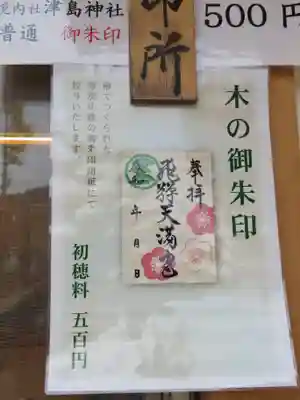 境内社 津島神社
普通 御朱印
印所
500円
木の御朱印
奉拝
飛騨天満宮
年 月 日
授与いたします。
初穂料 五百円